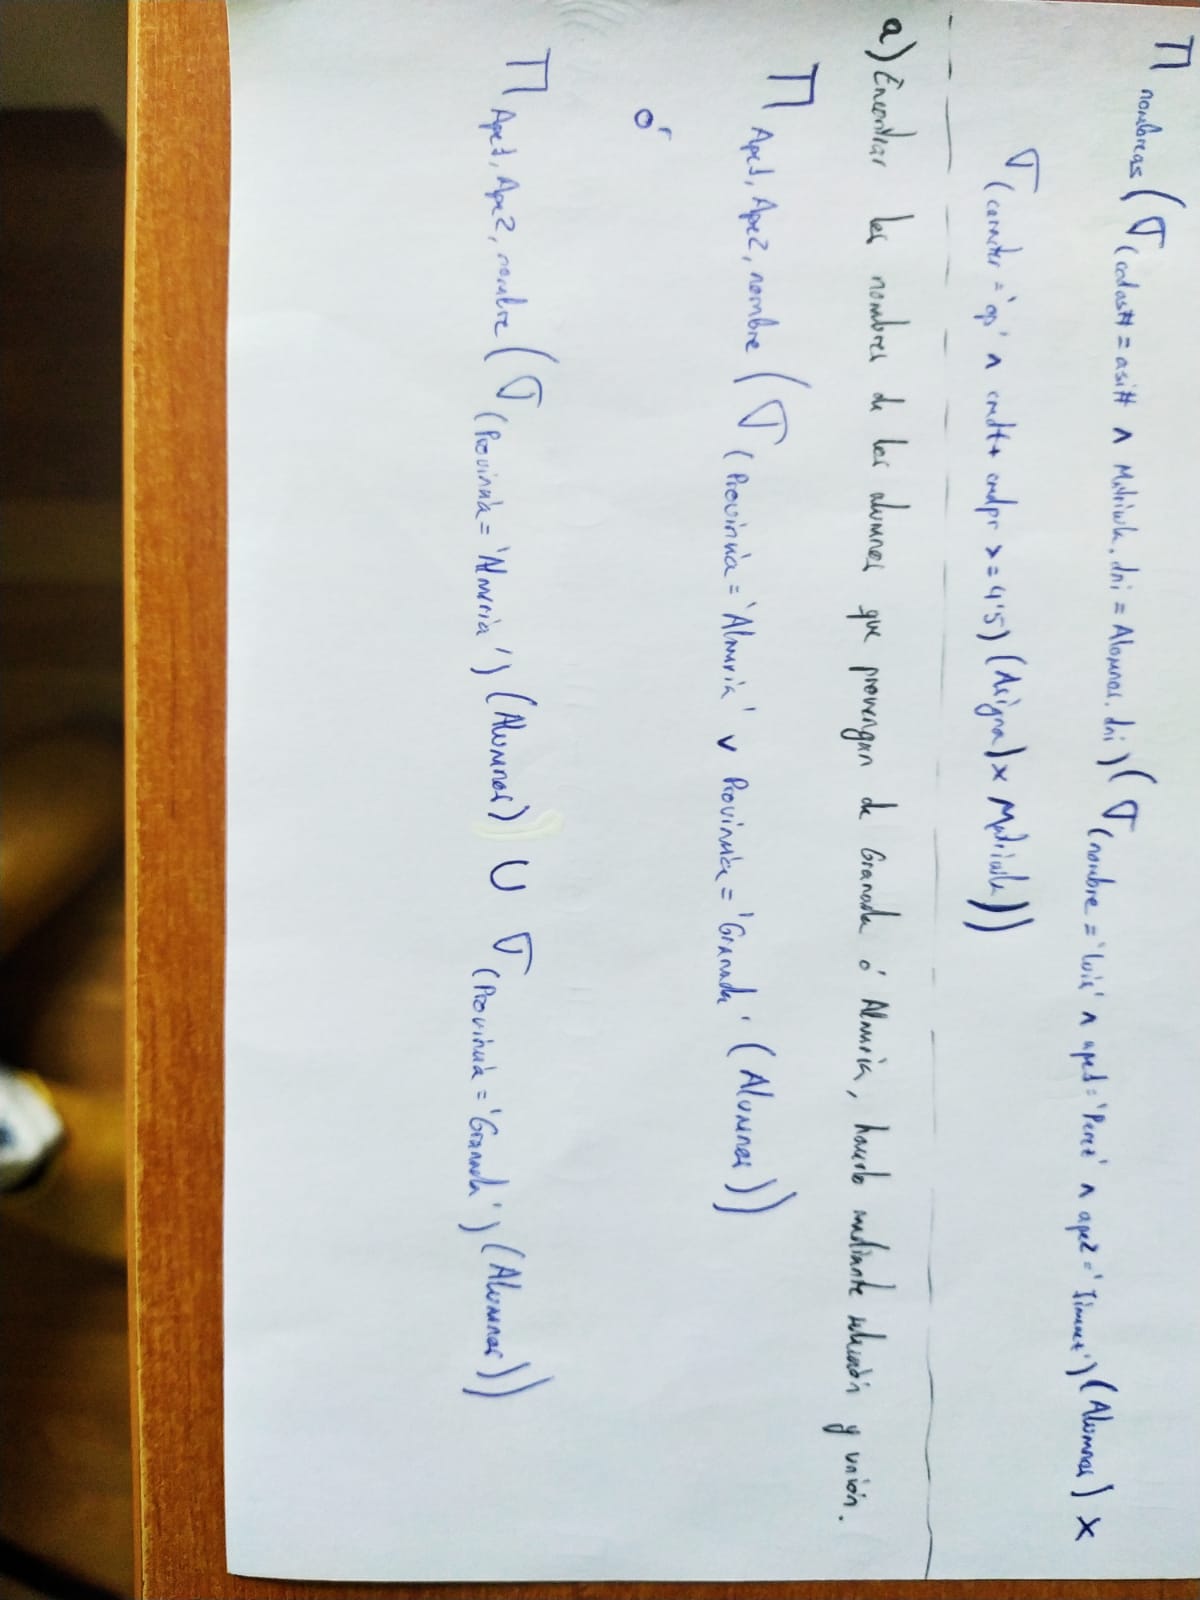 Π nombreas (σ (codas# = asi# ∧ Matricula.dni = Alumnos.dni) (σ (nombre = 'Luis' ∧ ape1 = 'Perez' ∧ ape2 = 'Jimenez') (Alumnos) ×
σ (caracter = 'op' ∧ credt + credpr >= 4'5) (Asigna) × Matricula))
a) Encontrar los nombres de los alumnos que provengan de Granada ó Almería, hacerlo mediante selección y unión.
Π Ape1, Ape2, nombre (σ (Provincia = 'Almeria' ∨ Provincia = 'Granada' (Alumnos))
ó
Π Ape1, Ape2, nombre (σ (Provincia = 'Almeria') (Alumnos) ∪ σ (Provincia = 'Granada') (Alumnos))